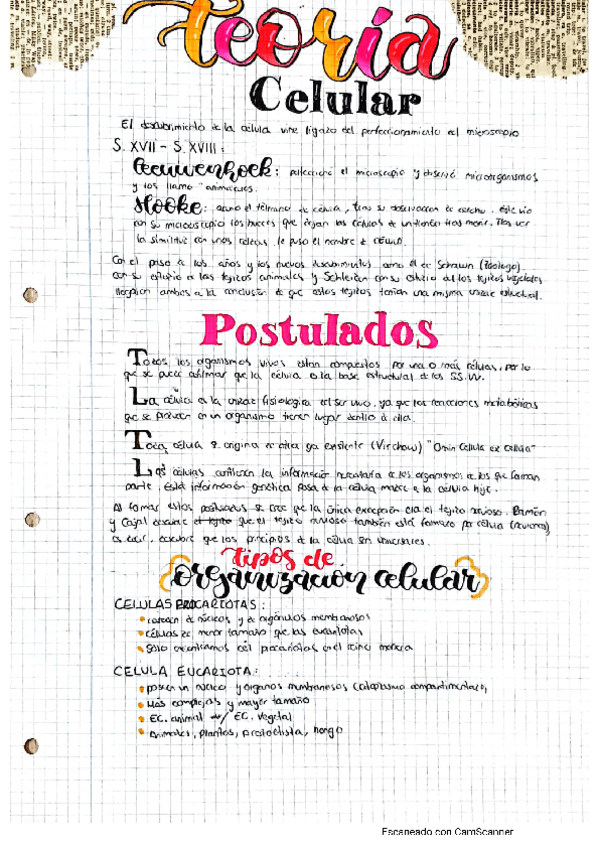 Teoría
Celular
El descubrimiento de la célula vine ligado del perfeccionamiento del microscopio
S. XVII - S. XVIII :
Leeuwenhoek : perfecciono el microscopio y observó microorganismos
y los llamo "animaculos.
Hooke : acuño el término de célula, tras su observación de corcho. Este vio
por su microscopio los huecos que dejan las células de un tejido tras morir. Tras ver
la similitud con unas celdas le puso el nombre de célula.
Con el paso de los años y los nuevos descubrimientos como el de Schwann (Zoologo)
con su estudio de los tejidos animales y Schleiden con su estudio de los tejidos vegetales
llegaron ambos a la conclusión de que estos tejidos tenían una misma unidad estructural.
Postulados
Todos los organismos vivos estan compuestos por una o más células, por lo
que se puede afirmar que la célula es la base estructural de los SS.VV.
La célula es la unidad fisiologica del ser vivo, ya que las reacciones metabólicas
que se producen en un organismo tienen lugar dentro de ella.
Toda célula se origina de otra ya existente (Virchow) "Omin Celula ex Celula"
Las células contienen la información necesaria de los organismos de los que forman
parte. Esta información genética pasa de la célula madre a la célula hija.
Al formar estos postulados se cree que la única excepción era el tejido nervioso. Ramón
y Cajal descubre el tejido que el tejido nervioso también está formado por célula (neurona)
es decir, descubre que los principios de la célula son universales.
tipos de
organización celular
CELULAS PROCARIOTAS :
carecen de núcleos y de orgánulos membranosos
células de menor tamaño que las eucariotas
Solo encontramos cél procariotas en el reino monera
CELULA EUCARIOTA :
poseen un núcleo y organos membranosos (citoplasma compartimentado)
Más complejas y mayor tamaño
EC. animal / EC. vegetal
Animales, plantas, protoctista, hongo
Escaneado con CamScanner